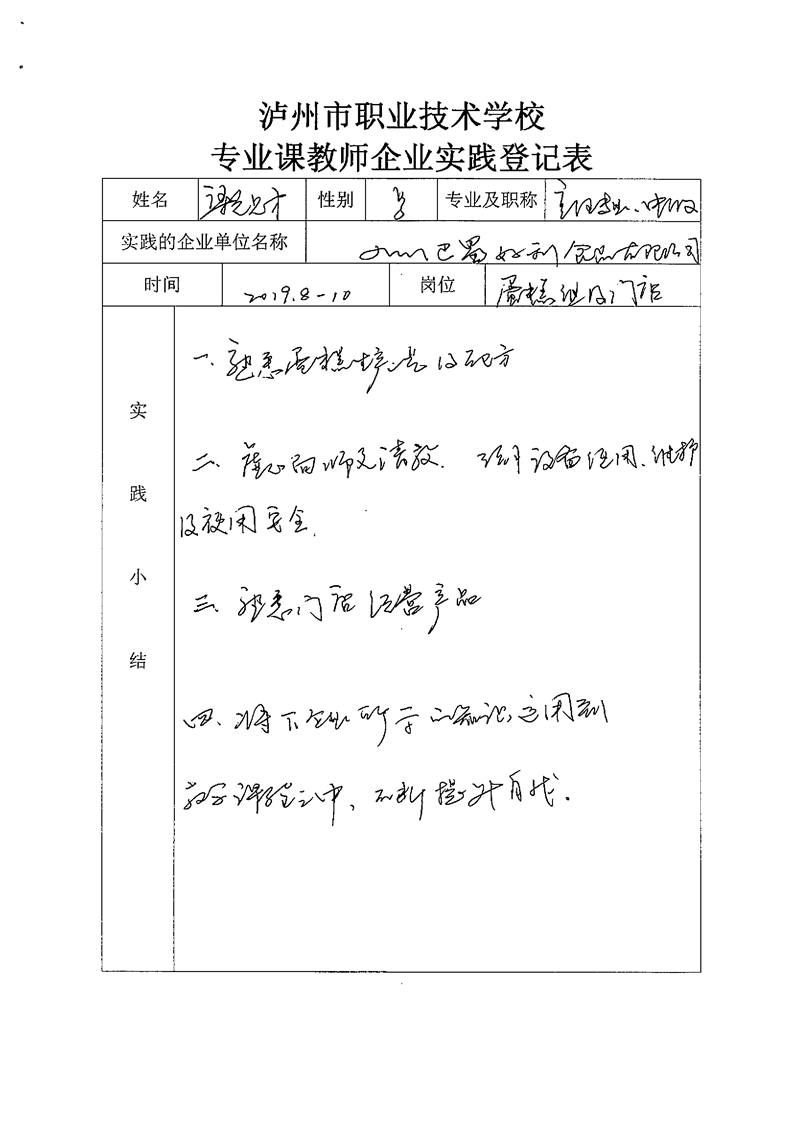 泸州市职业技术学校
专业课教师企业实践登记表
姓名 性别 男 专业及职称
实践的企业单位名称 巴蜀好利食品有限公司
时间 2019.8-10 岗位 蛋糕组及门店
实践小结
一、熟悉蛋糕生产工艺及配方
二、虚心向师父请教. 设备使用、维护
及使用安全.
三、熟悉门店经营产品
四、将下企业所学的知识,运用到
教学课程之中,不断提升自我.